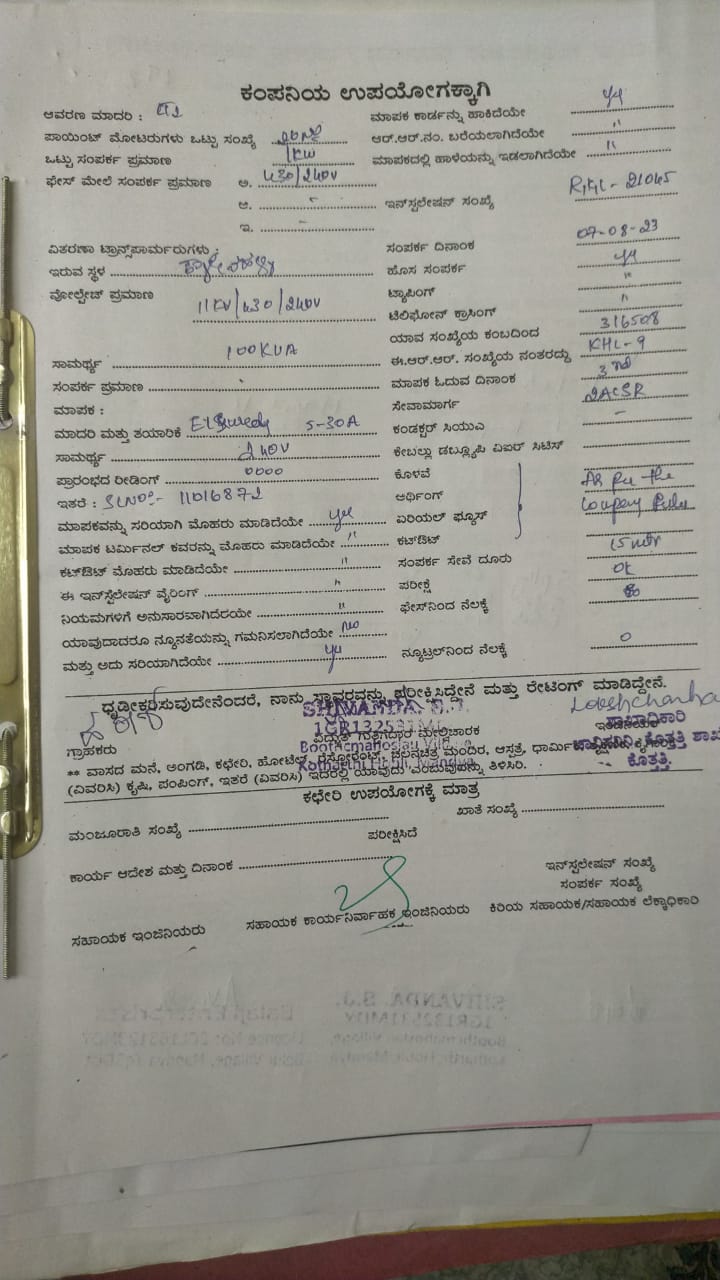 ಕಂಪನಿಯ ಉಪಯೋಗಕ್ಕಾಗಿ
ಆವರಣ ಮಾದರಿ : ಮಾಪಕ ಕಾರ್ಡನ್ನು ಹಾಕಿದೆಯೇ
ಪಾಯಿಂಟ್ ಮೋಟರುಗಳು ಒಟ್ಟು ಸಂಖ್ಯೆ ಆರ್.ಆರ್.ನಂ. ಬರೆಯಲಾಗಿದೆಯೇ "
ಒಟ್ಟು ಸಂಪರ್ಕ ಪ್ರಮಾಣ 1KW ಮಾಪಕದಲ್ಲಿ ಹಾಳೆಯನ್ನು ಇಡಲಾಗಿದೆಯೇ "
ಫೇಸ್ ಮೇಲೆ ಸಂಪರ್ಕ ಪ್ರಮಾಣ ಅ. 430/240V
ಆ. ಇನ್‌ಸ್ಟಲೇಷನ್ ಸಂಖ್ಯೆ - 21045
ಇ.
ವಿತರಣಾ ಟ್ರಾನ್ಸ್‌ಪಾರ್ಮರುಗಳು : ಸಂಪರ್ಕ ದಿನಾಂಕ 07-08-23
ಇರುವ ಸ್ಥಳ ಹೊಸ ಸಂಪರ್ಕ
ವೋಲ್ಟೇಜ್ ಪ್ರಮಾಣ 11KV/430/240V ಟ್ಯಾಪಿಂಗ್ "
ಟೆಲಿಫೋನ್ ಕ್ರಾಸಿಂಗ್ "
ಯಾವ ಸಂಖ್ಯೆಯ ಕಂಬದಿಂದ 316508
ಸಾಮರ್ಥ್ಯ 100KVA ಈ.ಆರ್.ಆರ್. ಸಂಖ್ಯೆಯ ನಂತರದ್ದು KHL-9
ಸಂಪರ್ಕ ಪ್ರಮಾಣ ಮಾಪಕ ಓದುವ ದಿನಾಂಕ 3rd
ಮಾಪಕ : ಸೇವಾಮಾರ್ಗ 2ACSR
ಮಾದರಿ ಮತ್ತು ತಯಾರಿಕೆ 5-30A ಕಂಡಕ್ಟರ್ ಸಿಯುಎ -
ಸಾಮರ್ಥ್ಯ 240V ಕೇಬಲ್ಲು ಡಬ್ಲ್ಯೂಪಿ ವಿಐರ್ ಸಿಟಿಸ್
ಪ್ರಾರಂಭದ ರೀಡಿಂಗ್ 0000 ಕೊಳವೆ
ಇತರೆ : SLNO:- 11016872 ಅರ್ಥಿಂಗ್ As per the
ಮಾಪಕವನ್ನು ಸರಿಯಾಗಿ ಮೊಹರು ಮಾಡಿದೆಯೇ yes ಏರಿಯಲ್ ಫ್ಯೂಸ್ Company Rules
ಮಾಪಕ ಟರ್ಮಿನಲ್ ಕವರನ್ನು ಮೊಹರು ಮಾಡಿದೆಯೇ " ಕಟ್‌ಔಟ್
ಕಟ್‌ಔಟ್ ಮೊಹರು ಮಾಡಿದೆಯೇ " ಸಂಪರ್ಕ ಸೇವೆ ದೂರು 15 mtr
ಈ ಇನ್‌ಸ್ಟೆಲೇಷನ್ ವೈರಿಂಗ್ " ಪರೀಕ್ಷೆ OK
ನಿಯಮಗಳಿಗೆ ಅನುಸಾರವಾಗಿದೆಯೇ " ಫೇಸ್‌ನಿಂದ ನೆಲಕ್ಕೆ
ಯಾವುದಾದರೂ ನ್ಯೂನತೆಯನ್ನು ಗಮನಿಸಲಾಗಿದೆಯೇ No
ಮತ್ತು ಅದು ಸರಿಯಾಗಿದೆಯೇ ನ್ಯೂಟ್ರಲ್‌ನಿಂದ ನೆಲಕ್ಕೆ 0
ಧೃಡೀಕರಿಸುವುದೇನೆಂದರೆ, ನಾನು ಸ್ಥಾವರವನ್ನು ಪರೀಕ್ಷಿಸಿದ್ದೇನೆ ಮತ್ತು ರೇಟಿಂಗ್ ಮಾಡಿದ್ದೇನೆ.
SHIVANDA. S.J.
ಶಾಖಾಧಿಕಾರಿ
ಗ್ರಾಹಕರು ವಿದ್ಯುತ್ ಗುತ್ತಿಗೆದಾರ ಮೇಲ್ವಿಚಾರಕ
ಕೊತ್ತತ್ತಿ.
** ವಾಸದ ಮನೆ, ಅಂಗಡಿ, ಕಛೇರಿ, ಹೋಟೆಲ್, ರೆಸ್ಟೋರೆಂಟ್, ಚಲನಚಿತ್ರ ಮಂದಿರ, ಆಸ್ಪತ್ರೆ,
(ವಿವರಿಸಿ) ಕೃಷಿ, ಪಂಪಿಂಗ್, ಇತರೆ (ವಿವರಿಸಿ) ಇದರಲ್ಲಿ ಯಾವುದು ಎಂಬುವುದನ್ನು ತಿಳಿಸಿರಿ.
ಕಛೇರಿ ಉಪಯೋಗಕ್ಕೆ ಮಾತ್ರ
ಮಂಜೂರಾತಿ ಸಂಖ್ಯೆ ಖಾತೆ ಸಂಖ್ಯೆ
ಪರೀಕ್ಷಿಸಿದೆ
ಕಾರ್ಯ ಆದೇಶ ಮತ್ತು ದಿನಾಂಕ
ಇನ್‌ಸ್ಟಲೇಷನ್ ಸಂಖ್ಯೆ
ಸಂಪರ್ಕ ಸಂಖ್ಯೆ
ಸಹಾಯಕ ಇಂಜಿನಿಯರು ಸಹಾಯಕ ಕಾರ್ಯನಿರ್ವಾಹಕ ಇಂಜಿನಿಯರು ಕಿರಿಯ ಸಹಾಯಕ/ಸಹಾಯಕ ಲೆಕ್ಕಾಧಿಕಾರಿ